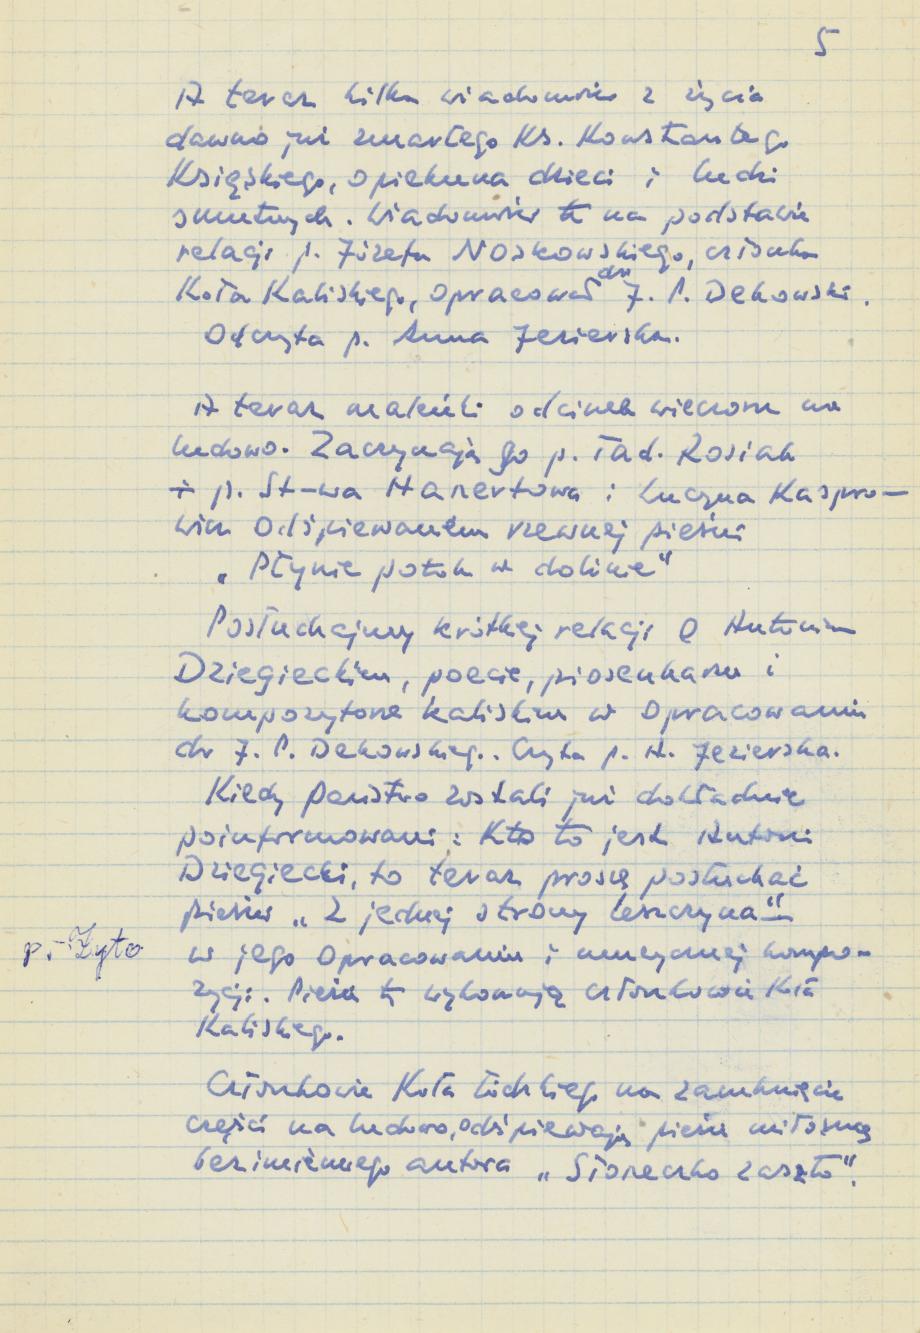 5
A teraz kilka wiadomości z życia
dawno już zmarłego Ks. Konstantego
Księskiego, opiekuna dzieci i ludzi
smutnych. Wiadomości te na podstawie
relacji p. Józefa Noskowskiego, członka
Koła Kaliskiego, opracował dr J. P. Dekowski.
Odczyta p. Anna Jezierska.
A teraz maleńki odcinek wieczoru na
ludowo. Zaczynają go p. Tad. Rosiak
i p. St-wa Hanertowa i Lucyna Kaspro-
wicz odśpiewaniem rzewnej pieśni
„Płynie potok w dolinie"
Posłuchajmy krótkiej relacji o Antonim
Dziegieckim, poecie, piosenkarzu i
kompozytorze kaliskim w opracowaniu
dr J. P. Dekowskiego. Czyta p. A. Jezierska.
Kiedy Państwo zostali już dokładnie
poinformowani: Kto to jest Antoni
Dziegiecki, to teraz proszę posłuchać
pieśni „Z jednej strony leszczyna"
p. Żyto
w jego opracowaniu i muzycznej kompo-
zycji. Pieśń tę wykonują członkowie Koła
Kaliskiego.
Członkowie Koła Łódzkiego na zamknięcie
części na ludowo, odśpiewają pieśń miłosną
bezimiennego autora „Słoneczko zaszło".